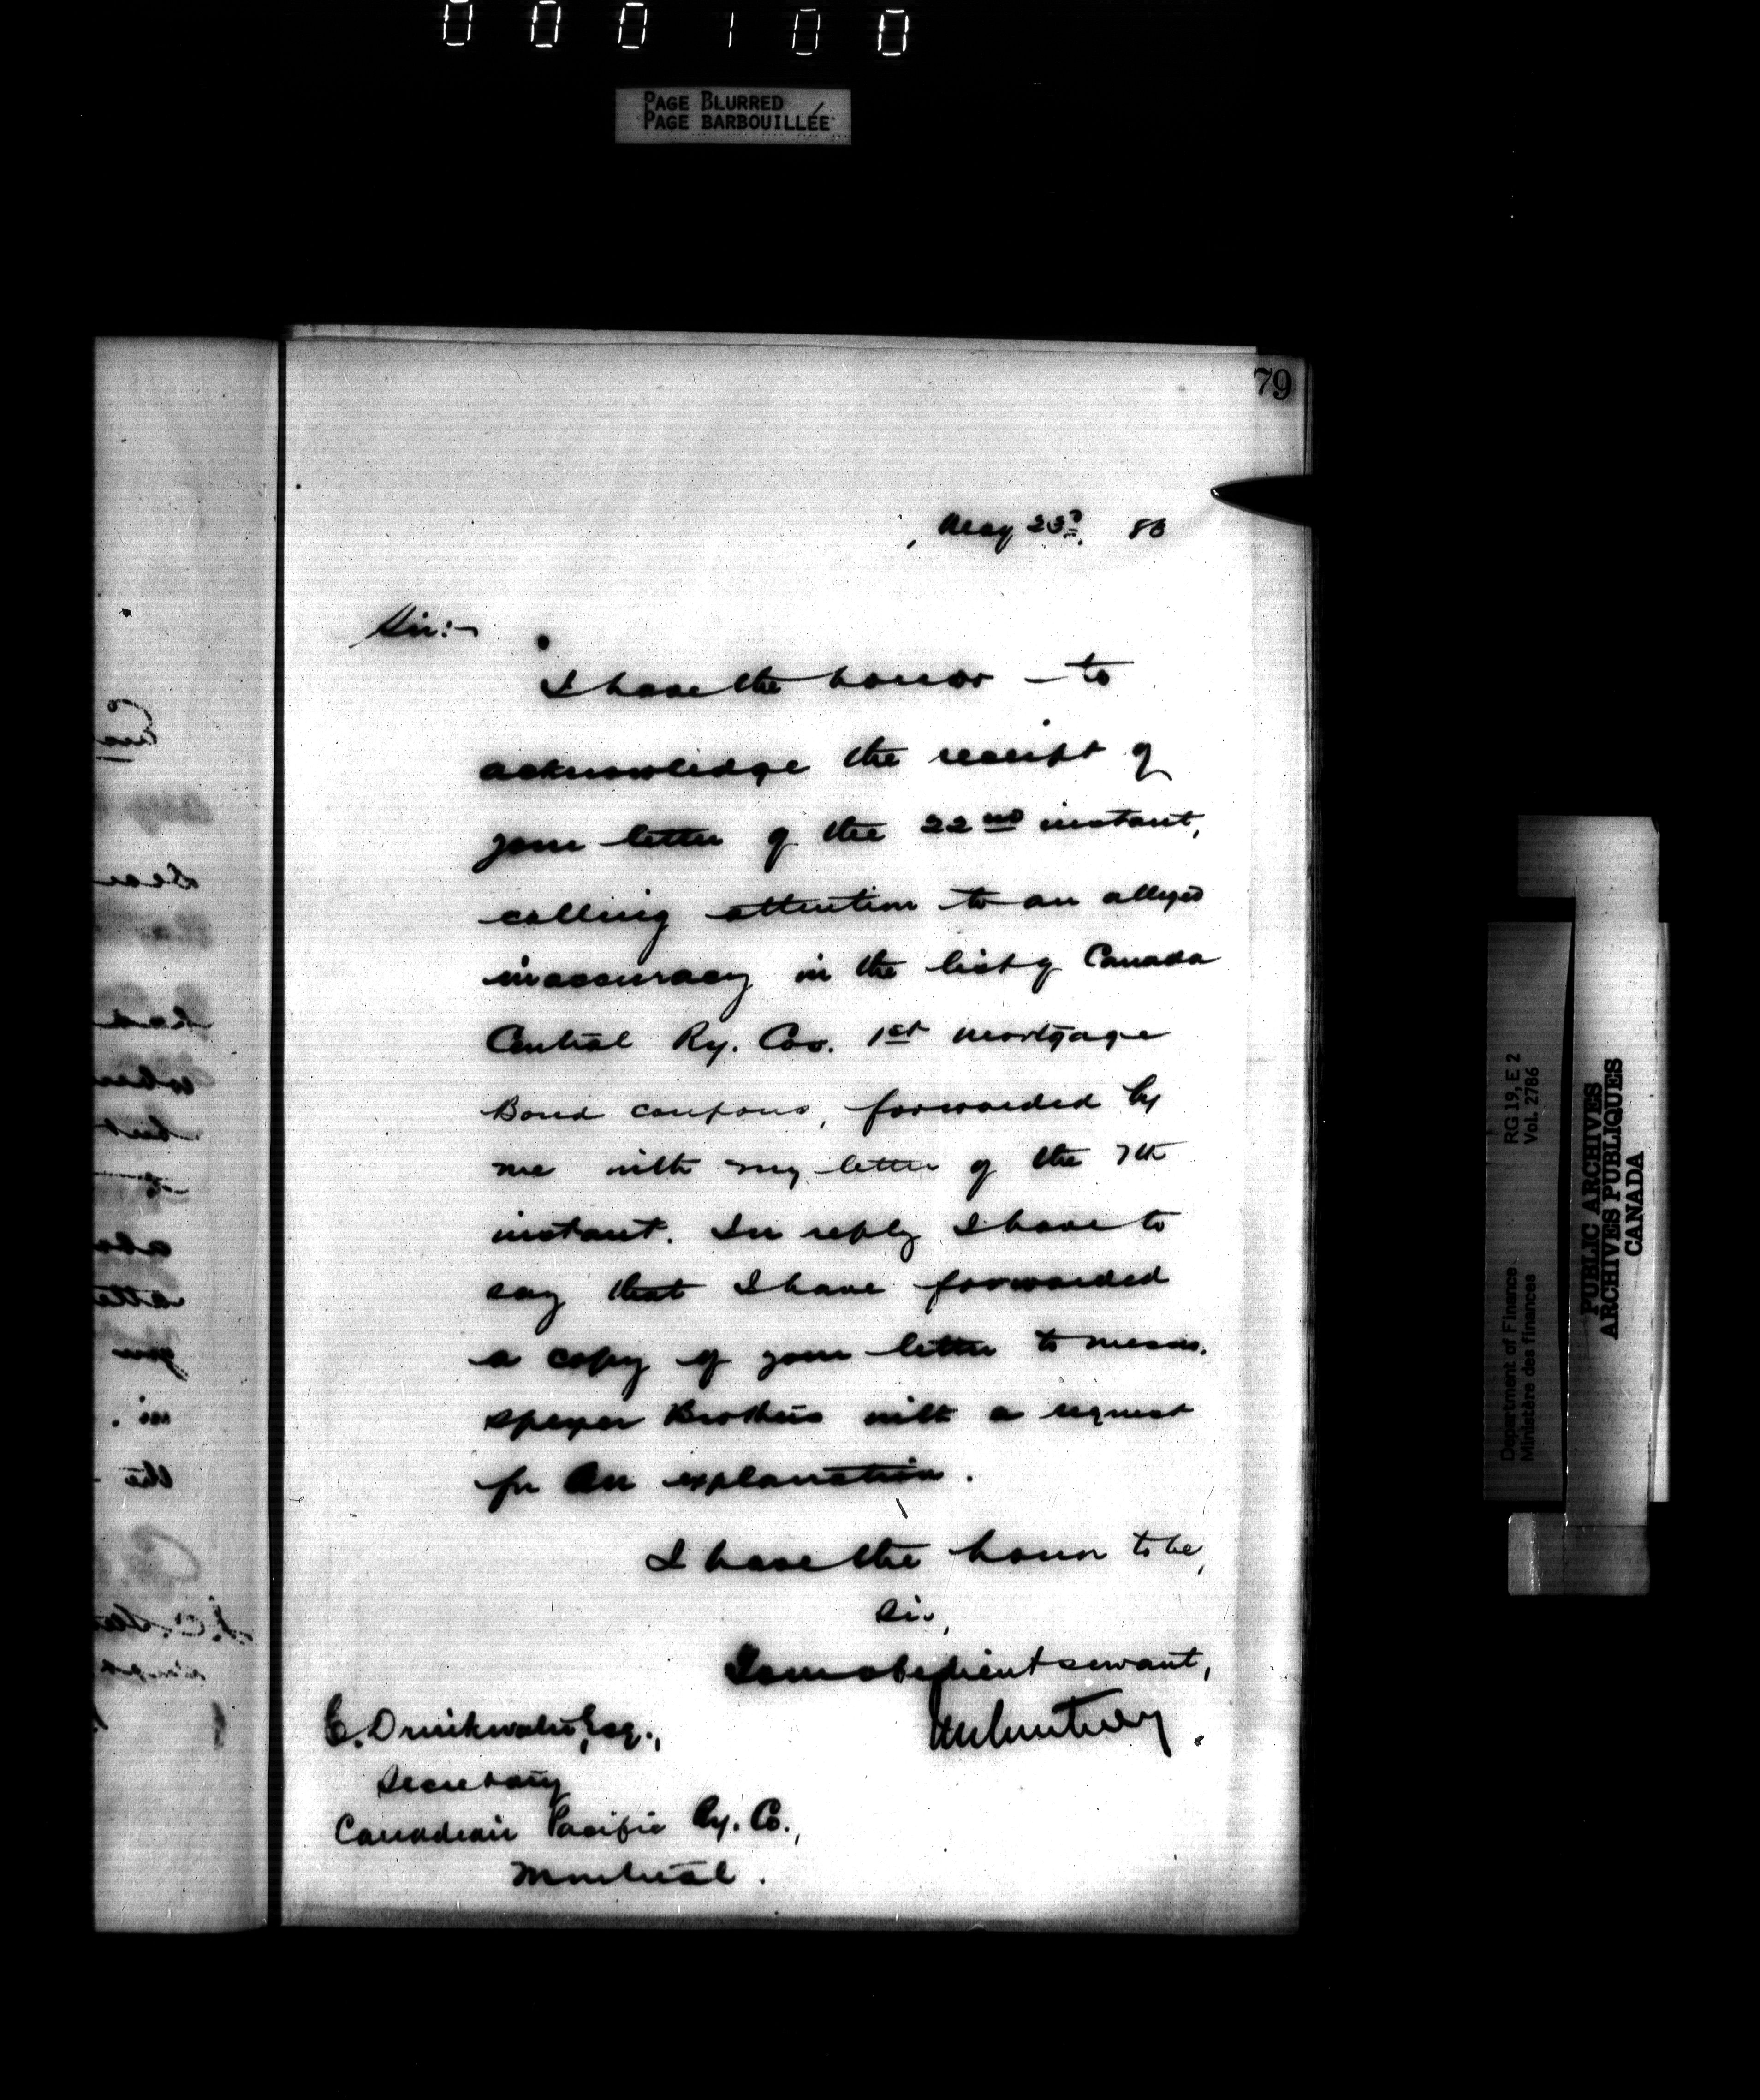 000100
PAGE BLURRED
PAGE BARBOUILLÉE
79
May 23d. 83
Sir:-
I have the honor to
acknowledge the receipt of
your letter of the 22nd instant,
calling attention to an alleged
inaccuracy in the list of Canada
Central Ry. Co. 1st mortgage
Bond coupons, forwarded by
me with my letter of the 7th
instant. In reply I have to
say that I have forwarded
a copy of your letter to Messrs.
Speyer Brothers with a request
for an explanation.
I have the honor to be,
Sir,
Your obedient servant,
C. Drinkwater, Esq.,
Secretary
Canadian Pacific Ry. Co.,
Montreal.
Department of Finance RG 19, E 2
Ministère des finances Vol. 2786
PUBLIC ARCHIVES
ARCHIVES PUBLIQUES
CANADA